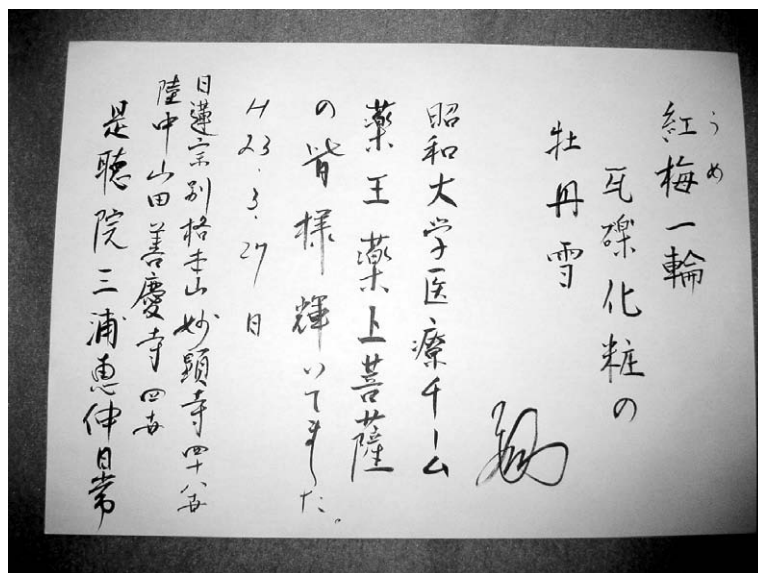 紅梅一輪
うめ
瓦礫化粧の
牡丹雪
昭和大学医療チーム
薬王薬上菩薩
の皆様輝いてました。
H23.3.27日
日蓮宗別格本山妙顕寺四十八世
陸中山田善慶寺四世
是聴院三浦恵伸日常